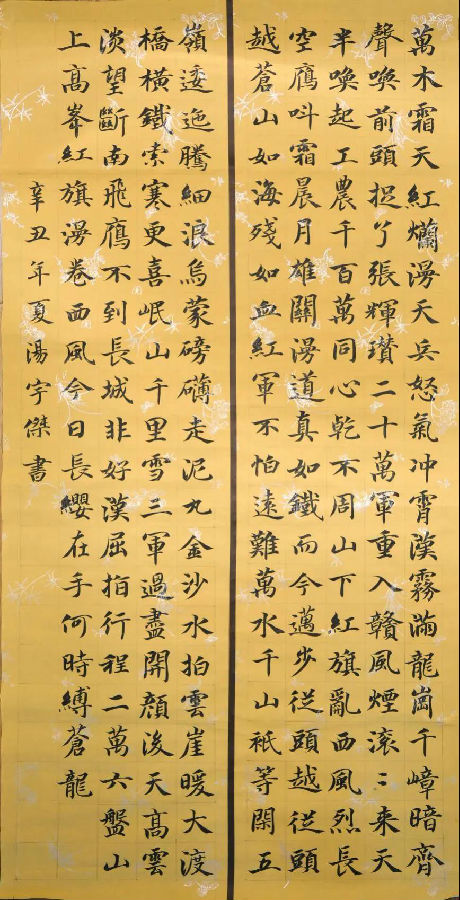 萬木霜天紅爛漫天兵怒氣冲霄漢霧滿龍崗千嶂暗齊
聲喚前頭捉了張輝瓚二十萬軍重入贛風煙滾〻來天
半喚起工農千百萬同心乾不周山下紅旗亂西風烈長
空鴈叫霜晨月雄關漫道真如鐵而今邁步從頭越從頭
越蒼山如海殘如血紅軍不怕遠難萬水千山衹等閑五
嶺逶迤騰細浪烏蒙磅礴走泥丸金沙水拍雲崖暖大渡
橋橫鐵索寒更喜岷山千里雪三軍過盡開顏後天高雲
淡望斷南飛鴈不到長城非好漢屈指行程二萬六盤山
上高峯紅旗漫卷西風今日長纓在手何時縛蒼龍
辛丑年夏湯宇傑書